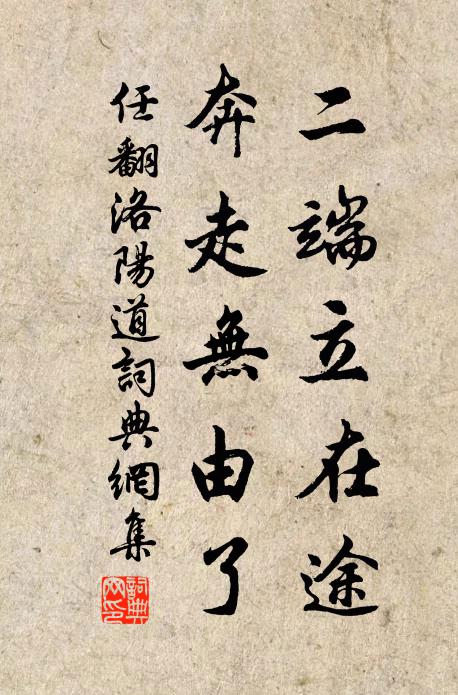 二端立在途
奔走無由了
任翻洛陽道詞典網集
詞典
网印